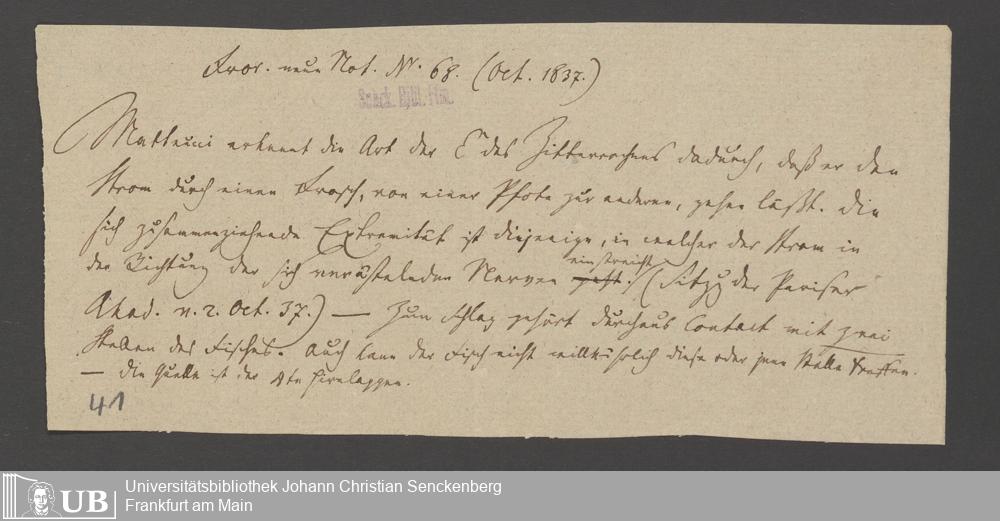 Fror. neue Not. Nr. 68. (Oct. 1837.)
Senck. Bibl. Ffm.
Matteucci erkennt die Art der E des Zitterrochens dadurch, daß er den
Strom durch einen Frosch, von einer Pfote zur anderen, gehen läßt. Die
sich zusammenziehende Extremität ist diejenige, in welcher der Strom in
einstreicht
der Richtung der sich verästelnden Nerven geht. (Sitzg der Pariser
Akad. v. 2. Oct. 37.) — Zum Schlag gehört durchaus Contact mit zwei
Stellen des Fisches. Auch kann der Fisch nicht willkührlich diese oder jene Stelle treffen.
— Die Quelle ist der 4te Hirnlappen.
41
UB
Universitätsbibliothek Johann Christian Senckenberg
Frankfurt am Main